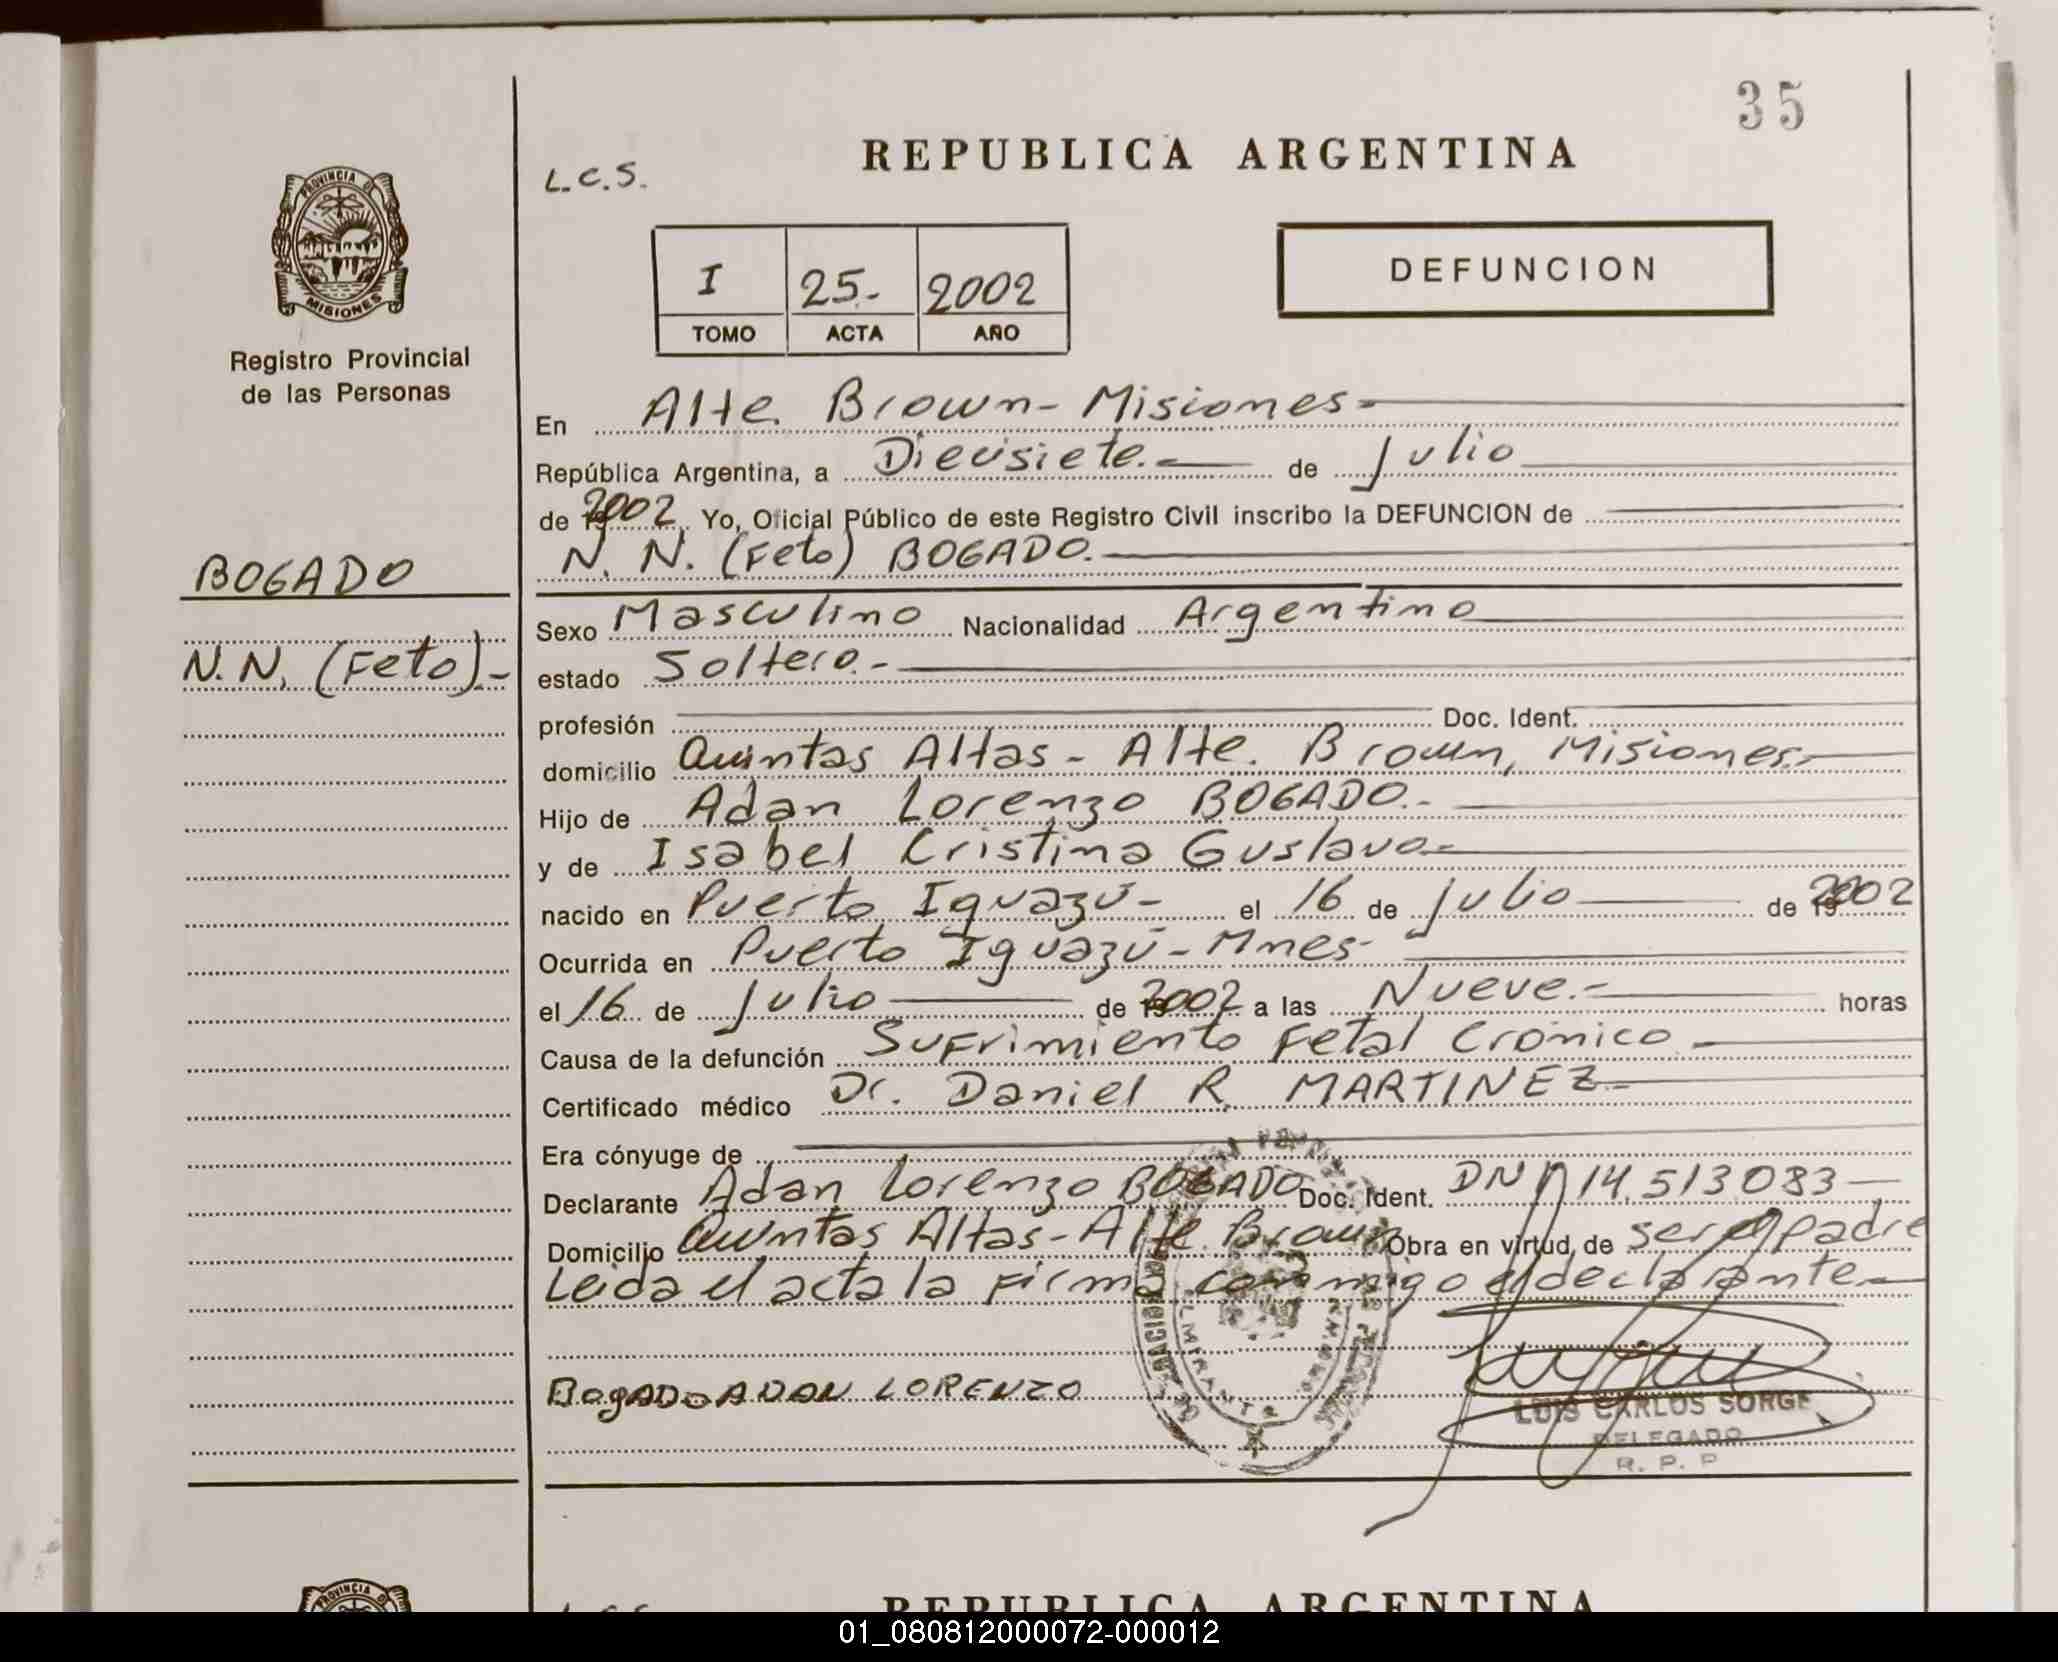 35
REPUBLICA ARGENTINA
L.C.S.
PROVINCIA D
MISIONES
Registro Provincial
de las Personas
I 25.- 2002
TOMO ACTA AÑO
DEFUNCION
En Alte. Brown - Misiones
República Argentina, a Diecisiete.- de Julio
de 2002 Yo, Oficial Público de este Registro Civil inscribo la DEFUNCION de
N. N. (Feto) BOGADO.
BOGADO
N.N. (Feto).-
Sexo Masculino Nacionalidad Argentino
estado Soltero.-
profesión Doc. Ident.
domicilio Quintas Altas - Alte. Brown, Misiones.-
Hijo de Adan Lorenzo BOGADO.-
y de Isabel Cristina Gustavo.-
nacido en Puerto Iguazú - el 16 de Julio de 2002
Ocurrida en Puerto Iguazú - Mnes-
el 16 de Julio de 2002 a las Nueve.- horas
Causa de la defunción Sufrimiento Fetal Crónico
Certificado médico Dr. Daniel R. MARTINEZ
Era cónyuge de
Declarante Adan Lorenzo BOGADO Doc. Ident. DNI 14.513.083
Domicilio Quintas Altas - Alte. Brown Obra en virtud de ser el padre
Leida el acta la firma conmigo el declarante.-
BogADo ADAN LORENZO
LUIS CARLOS SORGE
DELEGADO
R. P. P
PROVINCIA D
REPUBLICA ARGENTINA
01_080812000072-000012